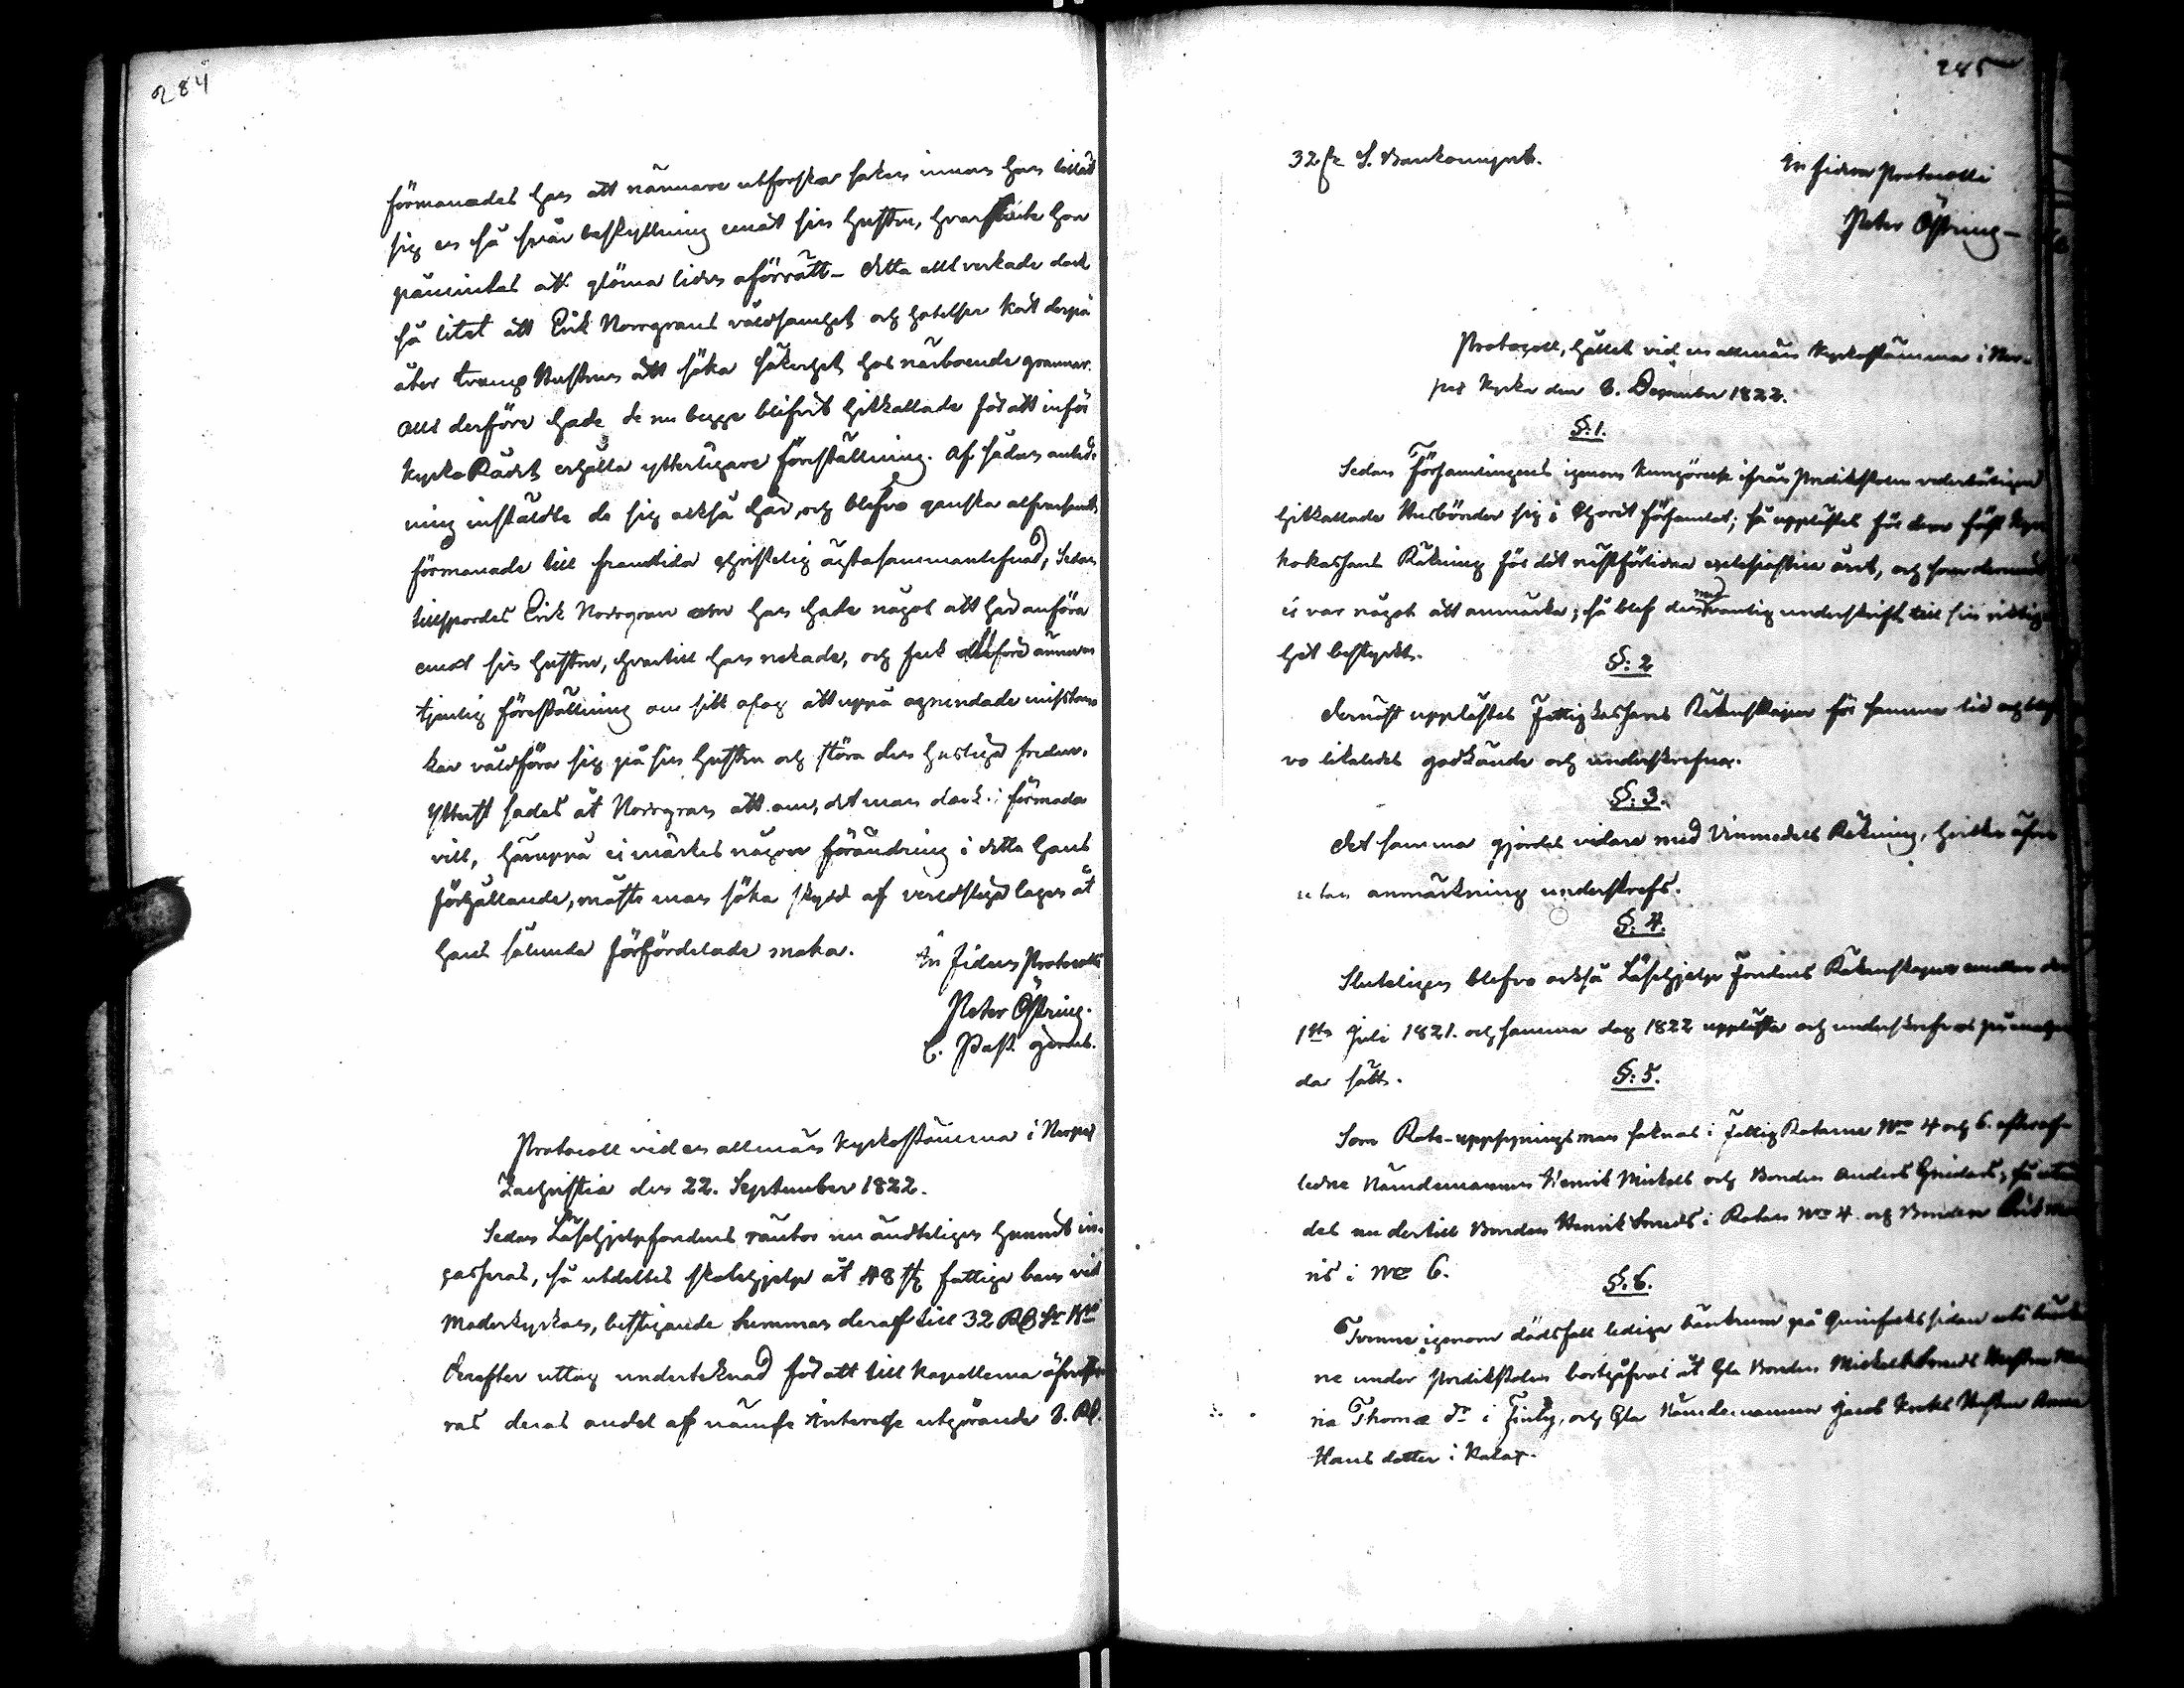 284
förmanades han att närmare utforska saken innan han tillät
sig en så svår beskyllning emot sin hustru, hvarföre hon
påmintes att glöma liden oförrätt – detta allt verkade dock
så litet att Erik Norrgrans våldsamhet och hotelser kort derpå
åter tvang hustrun att söka säkerhet hos närboende grannar.
Allt derföre hade de nu begge blifvit hitkallade för att inför
Kyrko Rådet erhålla ytterligare föreställning. Af sådan anled-
ning instälde de sig också här, och blefvo ganska alfvarsamt
förmanade till framtida christelig ägtasammanlefnad, Sedan
tillspordes Erik Norrgran om han hade något att här anföra
emot sin hustru, hvartill han nekade, och fick derföre ännu en
tjenlig föreställning om sitt ofog att uppå ogrundade misstan-
kar våldföra sig på sin hustru och störa den husliga freden.
Ytterst sades åt Norrgran att om, det man dock ej förmoda
vill, häruppå ei märkes någon förändring i detta hans
förhållande, måste man söka skydd af verldsliga lagen åt
hans sålunda förfördelade maka.
In fidem Protocolli
Peter Östring.
C. Past. genus.
Protocoll vid en allmän Kyrkostämma i Nerpes
Sachristia den 22. September 1822.
Sedan Läsehjelpsfondens räntor nu ändteligen hunnit in-
gasseras, så utdeltes skolehjelp åt 48 st fattiga barn vid
Moderkyrkan, bestigande summan deraf till 32 Rd
Derefter uttog undertecknad för att till Kapellerna öfverfö-
ras deras andel af nämde Interesse utgörande 8. Rd.
285
32 sk S. Bankomynt.
In fidem Protocolli
Peter Östring –
Protocoll, hållet vid en allmän Kyrkostämma i Ner-
pes Kyrka den 8. December 1822.
§: 1.
Sedan Församlingens igenom kungörelse ifrån Predikstolen vederbörligen
hitkallade Husbönder sig i Choret församlat; så upplästes för dem först Kyr-
kokassans Räkning för det nästförflidna ecclesiastica året, och som dermed
ei var något att anmärka; så blef den med vanlig underskrift till sin riktig-
het bestyrkt.
§: 2
Dernäst upplästes Fattigkassans Räkenskaper för samma tid och blef-
vo likaledes godkände och underskrefna.
§: 3.
Det samma gjordes vidare med Vinmedels Räkning, hvilken äfven
utan anmärkning underskrefs.
§: 4.
Sluteligen blefvo också Läsehjelps Fondens Räkenskaper emellan den
1sta Julii 1821. och samma dag 1822 upplästa och underskrefvos på enahan-
da sätt.
§: 5.
Som Rote-uppsyningsman saknas i Fattig Rotarna No 4 och 6. efter af-
ledne Nämdemannen Henrik Mickels och Bonden Anders Gnideds; så utse-
des nu dertill Bonden Henrik Smeds i Roten No 4. och Bonden
ris i No 6.
§: 6.
Tvenne igenom dödsfall lediga bänkrum på Qvinfolkssidan uti bänkar-
ne under predikstolen bortgåfvos åt Gla Bonden Mickel Smeds Hustru Ma-
ria Thomæ dr i Finby, och Gla Nämdemannen Jacob Hustru Anna
Hans dotter i Kalax.